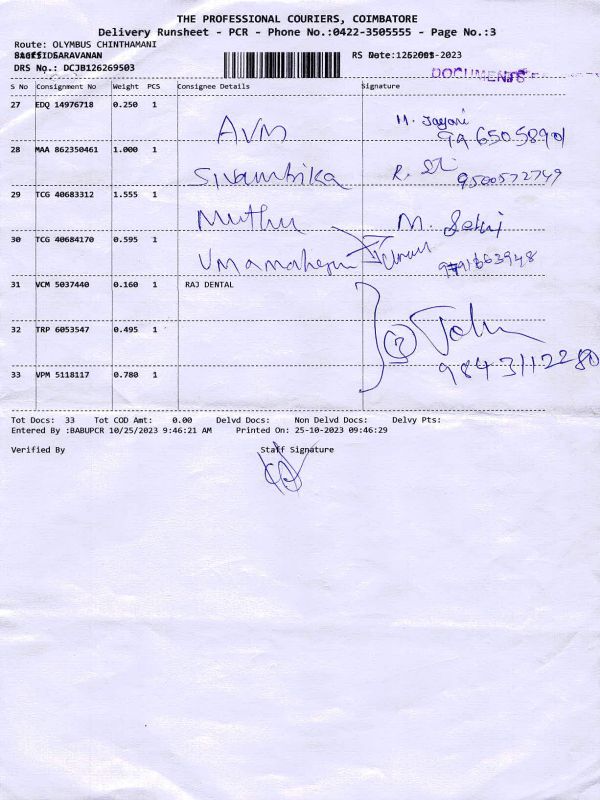 THE PROFESSIONAL COURIERS, COIMBATORE
Delivery Runsheet - PCR - Phone No.:0422-3505555 - Page No.:3
Route: OLYMBUS CHINTHAMANI
DRS No.: DCJB126269503
DOCUMENTS
S No Consignment No Weight PCS Consignee Details Signature
27 EDQ 14976718 0.250 1 AVM
28 MAA 862350461 1.000 1 Sivambika 9500572749
29 TCG 40683312 1.555 1 Muthu M. Selvi
30 TCG 40684170 0.595 1
31 VCM 5037440 0.160 1 RAJ DENTAL
32 TRP 6053547 0.495 1
9843112280
33 VPM 5118117 0.780 1
Tot Docs: 33 Tot COD Amt: 0.00 Delvd Docs: Non Delvd Docs: Delvy Pts:
Entered By :BABUPCR 10/25/2023 9:46:21 AM Printed On: 25-10-2023 09:46:29
Verified By Staff Signature